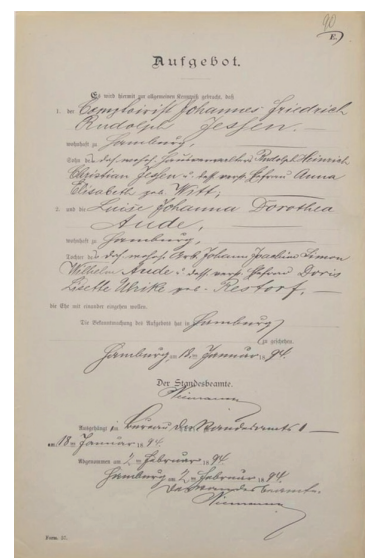 90
E.
Aufgebot.
Es wird hiermit zur allgemeinen Kenntniß gebracht, daß
1. der Comptoirist Johannes Friedrich
Rudolph Jessen.
wohnhaft zu Hamburg,
Sohn des Rudolph Heinrich
Christian Jessen u. dess. verst. Ehefrau Anna
Elisabeth geb. Witt;
2. und die Luise Johanna Dorothea
Aude,
wohnhaft zu Hamburg,
Tochter des Arb. Johann Joachim Simon
Wilhelm Aude u. dess. verst. Ehefrau Doris
Lisette Ulrike geb. Restorf,
die Ehe mit einander eingehen wollen.
Die Bekanntmachung des Aufgebots hat in Hamburg
zu geschehen.
Hamburg, am Januar 1894.
Der Standesbeamte.
Niemann
Ausgehängt im Bureau des Standesamts
am 18 ten Januar 1894.
Abgenommen am 2 ten Februar 1894
Hamburg am 2 ten Februar 1894.
Der Standesbeamte.
Niemann
Form. 37.